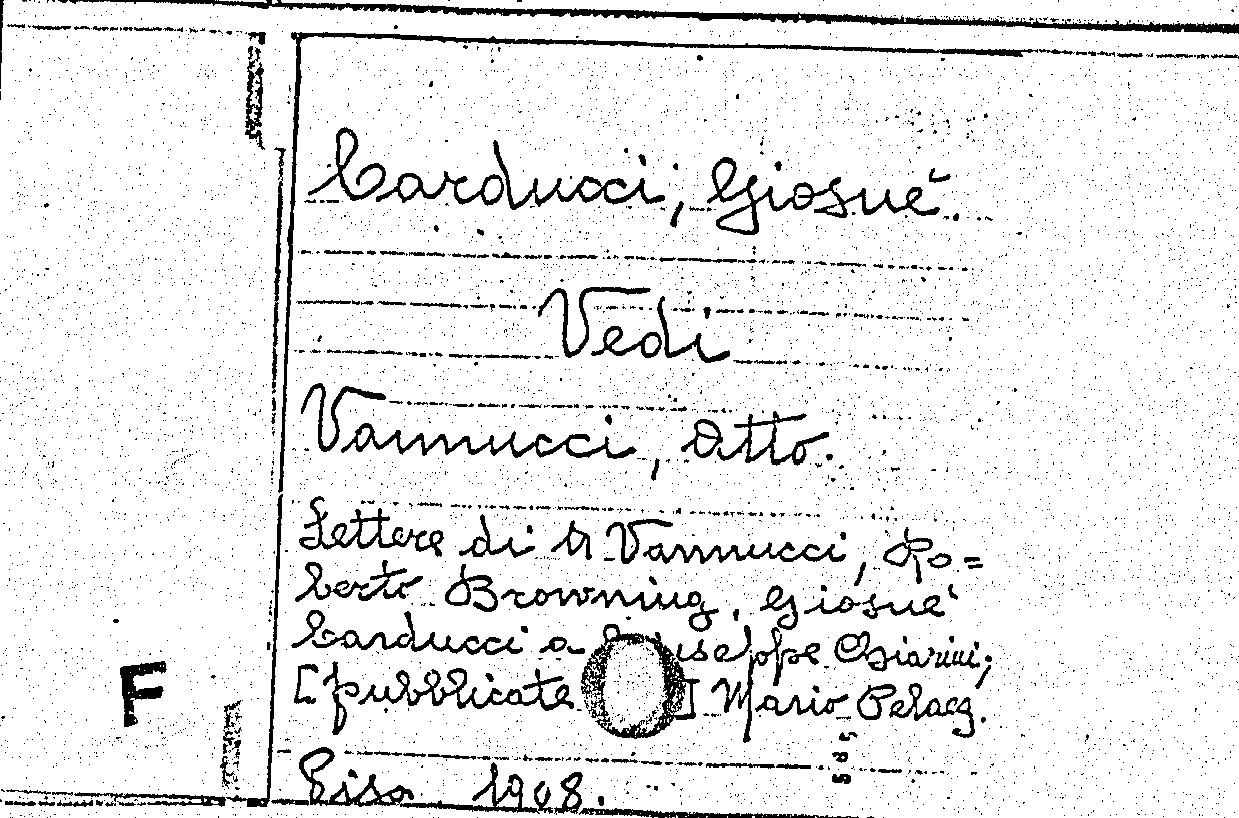 Carducci, Giosuè.
Vedi
Vannucci, Atto.
Lettere di A Vannucci, Ro=
berto Browning, Giosuè
Carducci a Giuseppe Chiarini;
[pubblicate ] Mario Pelaez.
Pisa. 1908.
F